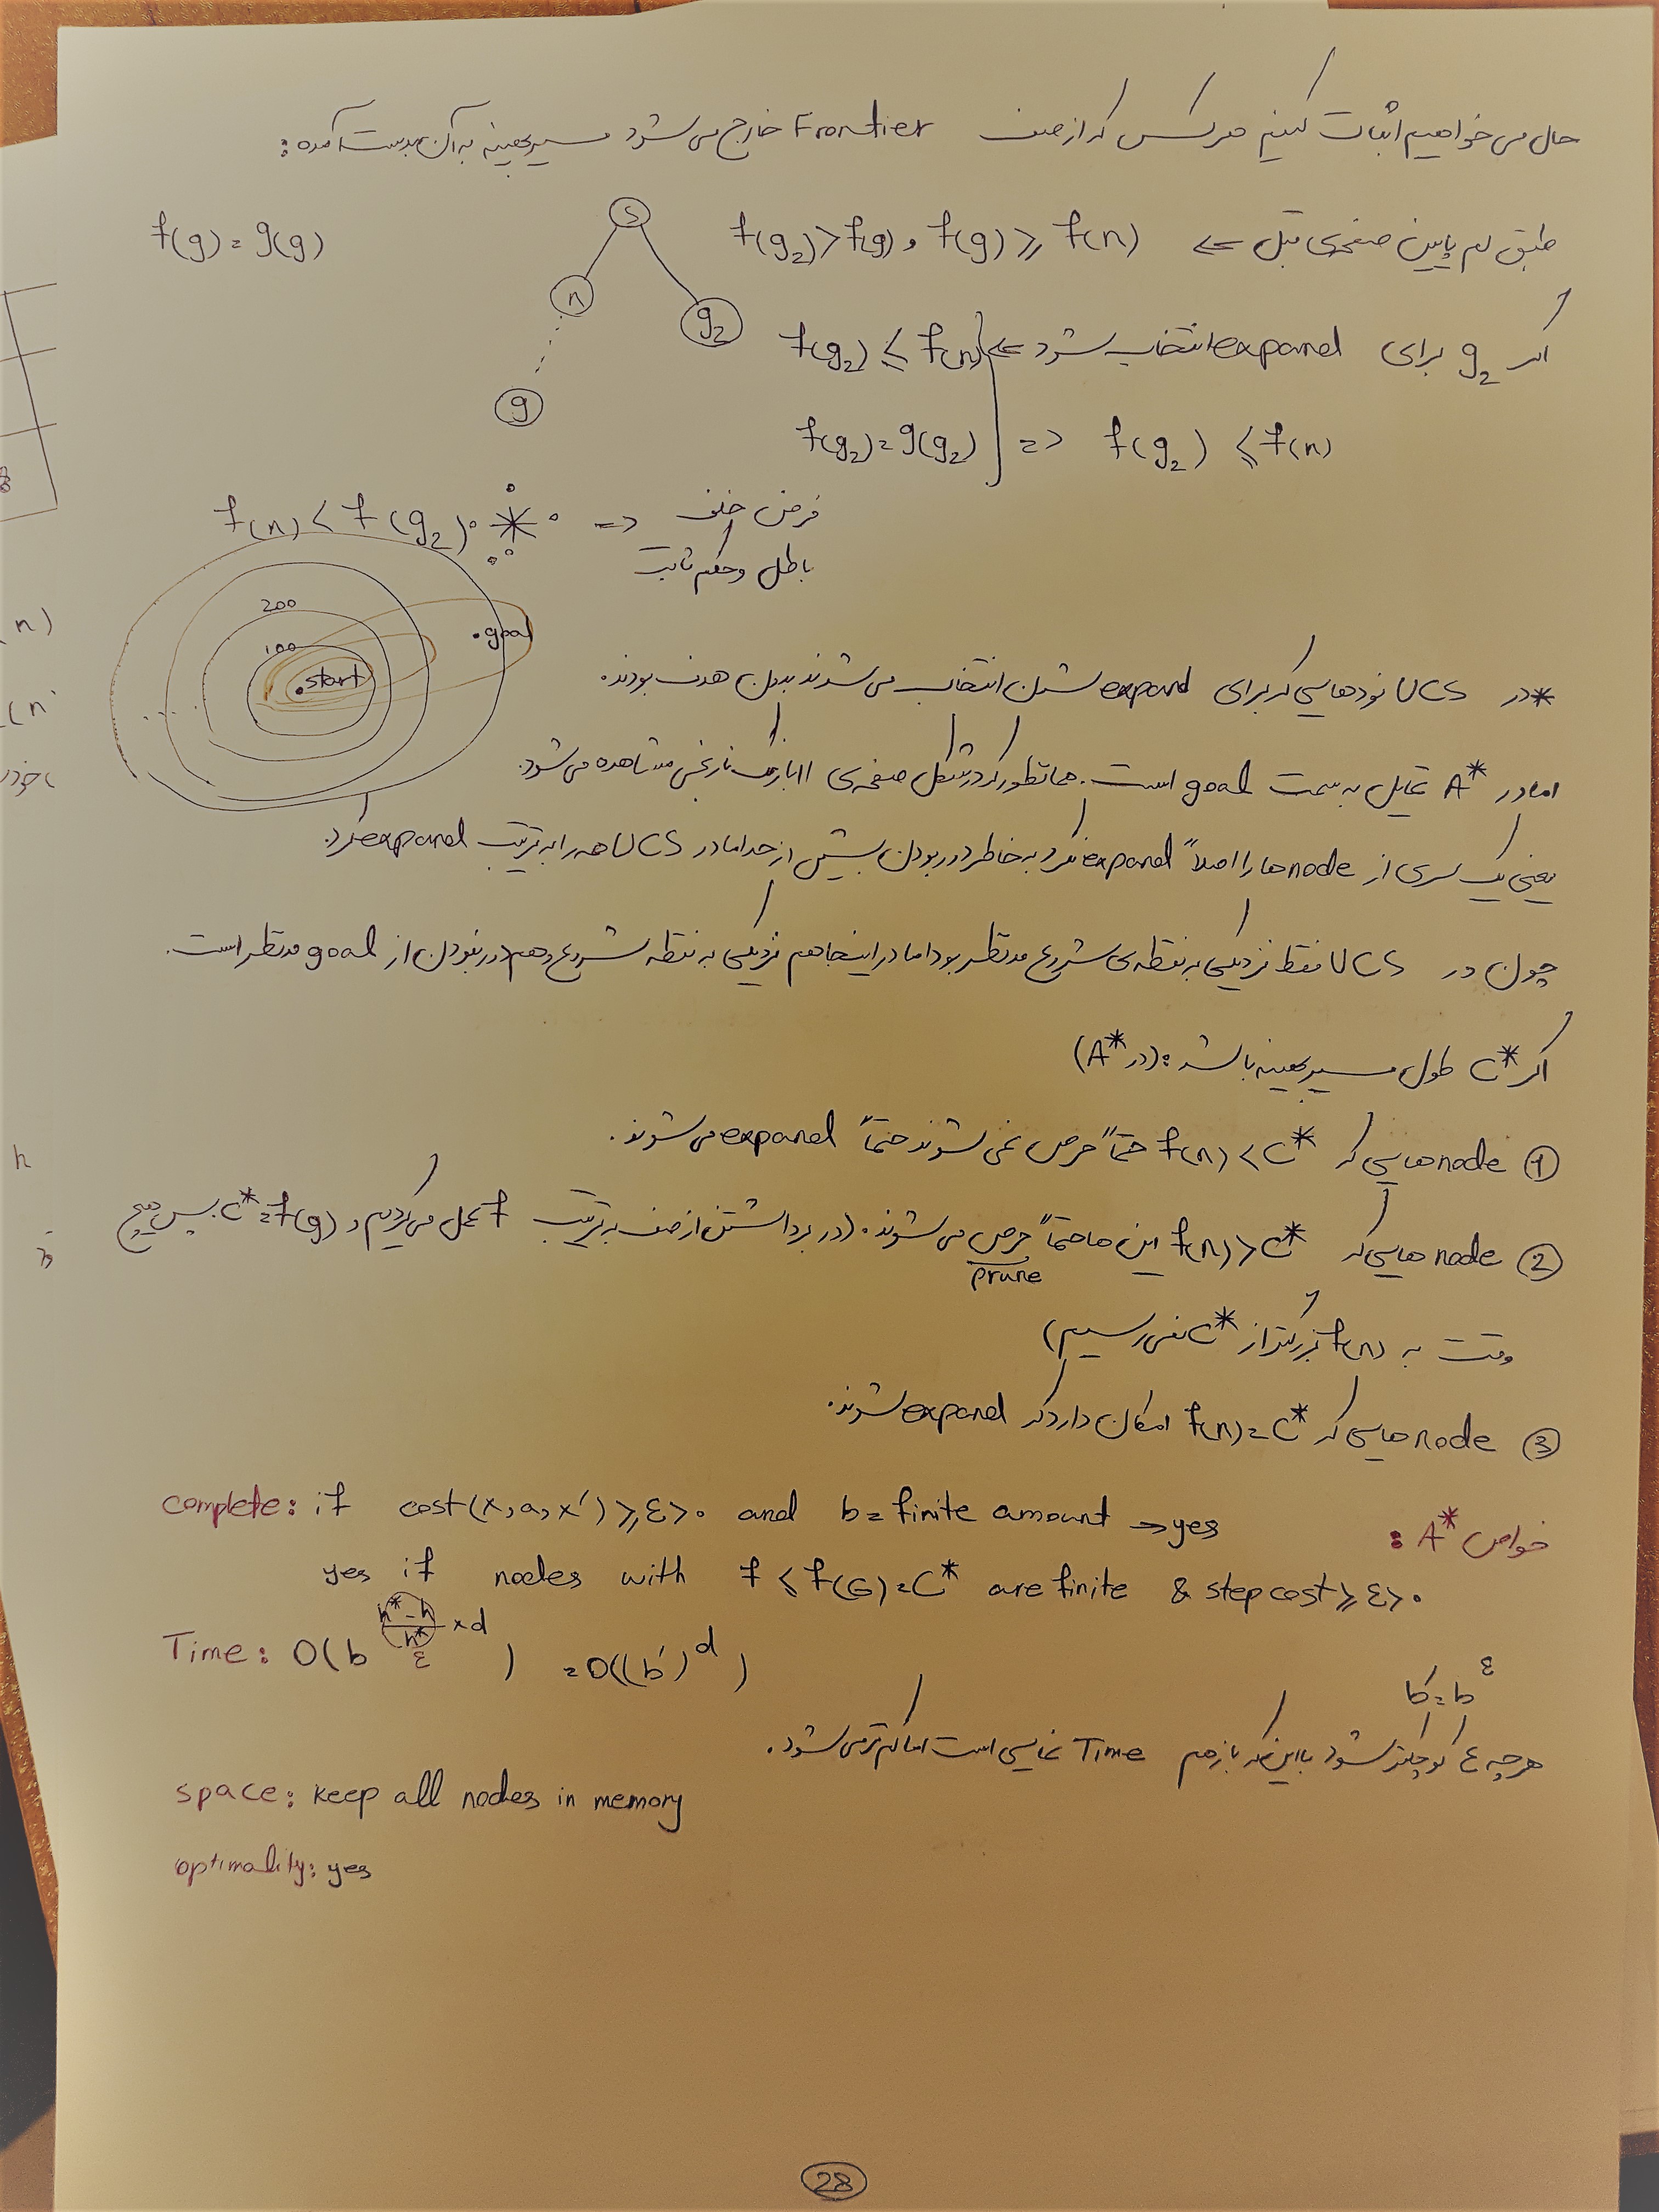 حال می‌خواهیم اثبات کنیم هرکس که از صف Frontier خارج می‌شود مسیر بهینه به آن بدست آمده:
طبق لم پایین صفحه‌ی قبل ⇐ f(g₂)>f(g) , f(g)⩾f(n)
f(g)=g(g)
s
n
g₂
g
اگر g₂ برای expand انتخاب شود ⇐ f(g₂)⩽f(n)
f(g₂)=g(g₂) => f(g₂)⩽f(n)
f(n)<f(g₂) * => فرض خلف
باطل و حکم ثابت
200
100
start
goal
*در UCS نودهایی که برای expand شدن انتخاب می‌شدند بدون هدف بودند.
اما در A* تمایل به سمت goal است. همانطور که در شکل صفحه‌ی ۱۱ با رنگ نارنجی مشاهده می‌شود.
یعنی یک سری از node ها را اصلاً expand نکرد به خاطر دور بودن بیش از حد اما در UCS همه را به ترتیب expand کرد.
چون در UCS فقط نزدیکی به نقطه‌ی شروع مدنظر بود اما در اینجا هم نزدیکی به نقطه شروع و هم دور نبودن از goal مدنظر است.
اگر C* طول مسیر بهینه باشد: (در A*)
① node هایی که f(n)<C* حتماً حرص نمی‌شوند حتماً expand می‌شوند.
② node هایی که f(n)>C* این ها حتماً حرص می‌شوند. (در برداشتن از صف به ترتیب f عمل می‌کردیم و C*=f(g). پس هیچ
prune
وقت به f(n) بزرگتر از C* نمی‌رسیم)
③ node هایی که f(n)=C* امکان دارد که expand شوند.
خواص A* :
complete: if cost(x,a,x')⩾ε>0 and b=finite amount → yes
yes if nodes with f⩽f(G)=C* are finite & step cost⩾ε>0
Time: O(b^((h*-h)/h* ×d)) =O((b')^d)
ε
b'=b^ε
هرچه ε کوچکتر شود با این که باز هم Time نمایی است اما کم‌تر می‌شود.
space: keep all nodes in memory
optimality: yes
28